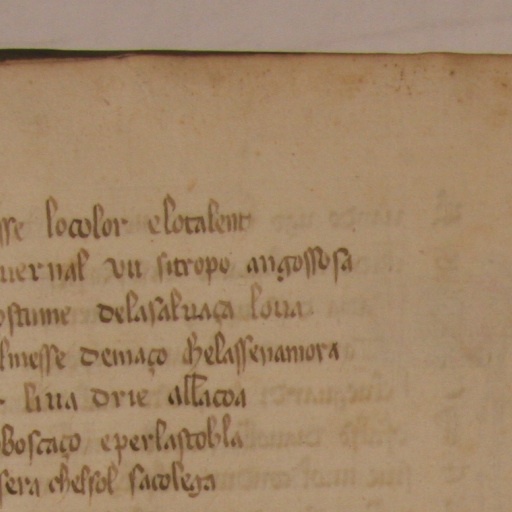 sse lo color e lo talent
uernal vu si tropo angossosa
ostume de la saluaça loua
lmesse de março che la sse namora
liua drie alla coa
boscaço e per la stobla
sera chel sol sa colega